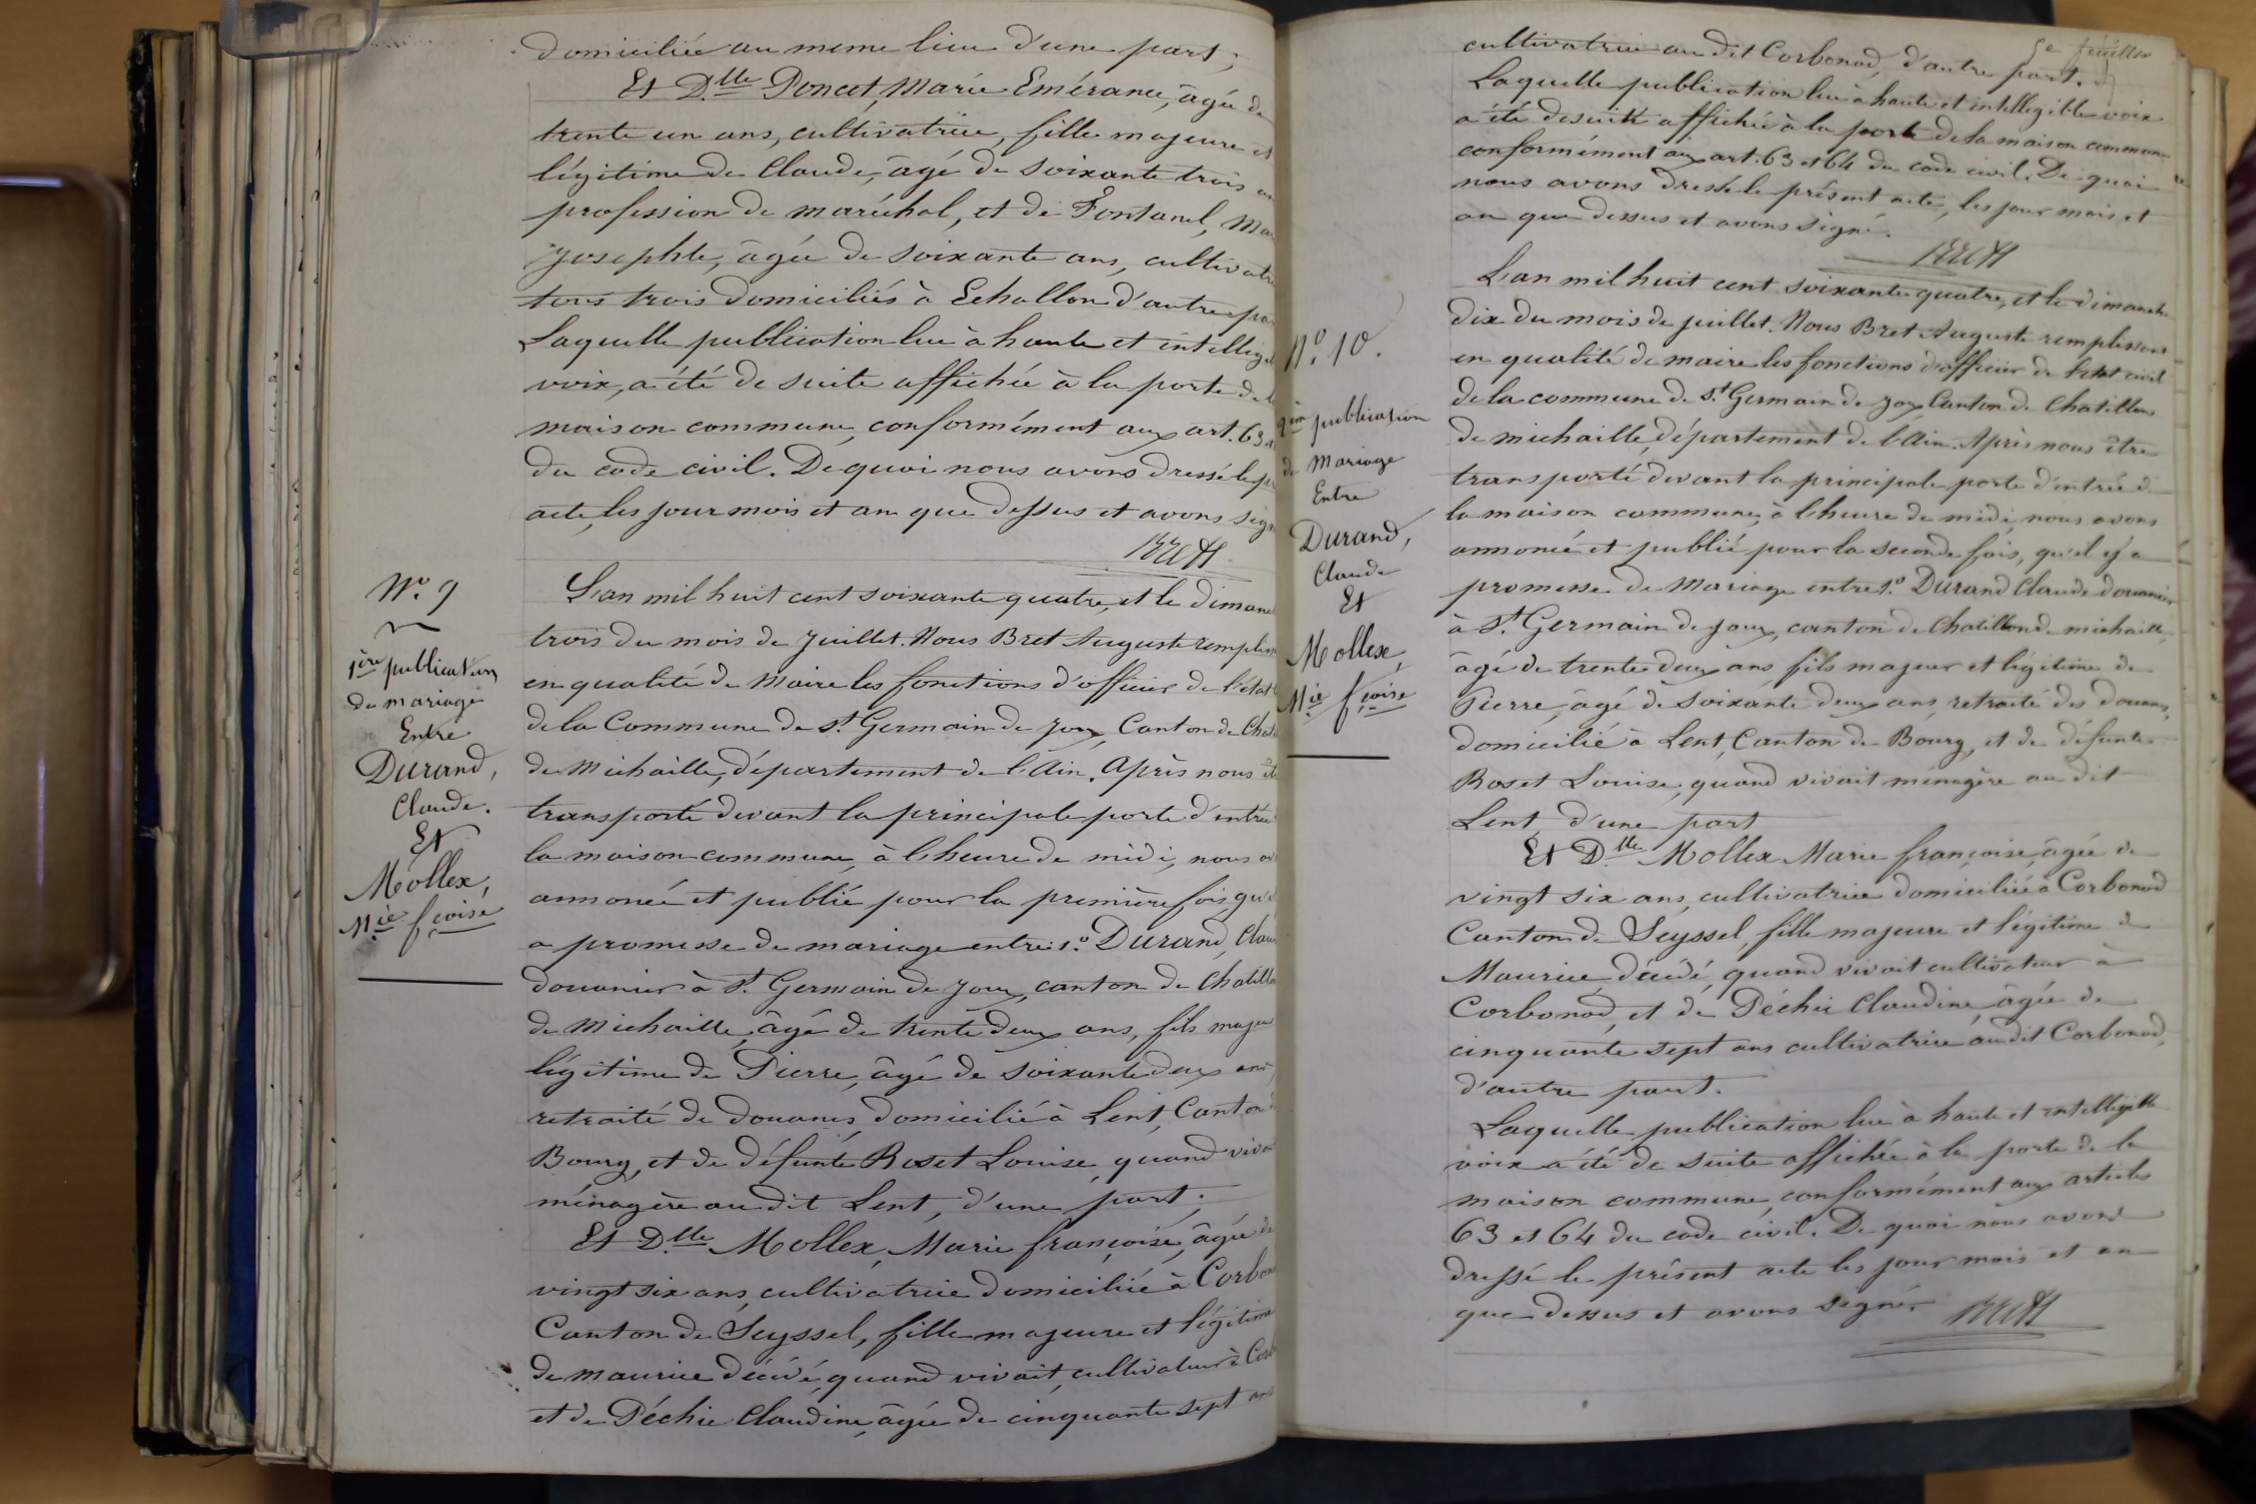 domiciliée au meme lieu d'une part;
Et D.lle Poncet, Marie Emérance, âgée de
trente un ans, cultivatrice, fille majeure et
légitime de Claude, âgé de soixante trois
profession de maréchal, et de Fontanel,
Josephte, âgée de soixante ans,
tous trois domiciliés à Echallon d'autre
Laquelle publication lue à haute et
voix, a été de suite affichée à la porte de
maison commune, conformément aux art. 63
du code civil. De quoi nous avons dressé le
acte, les jour mois et an que dessus et avons
Bret
N.o 9
1ère publication
de mariage
Entre
Durand,
Claude.
Et
Mollex,
Mie fçoise
L'an mil huit cent soixante quatre, et le
trois du mois de juillet. Nous Bret Auguste
en qualité de Maire les fonctions d'officier de l'état
de la Commune de St. Germain de joux, Canton de
de Michaille, département de l'Ain. Après nous
transporté devant la principale porte d'entrée
la maison commune, à l'heure de midi, nous
annoncé et publié pour la première fois
a promesse de mariage entre s.r Durand,
douanier à St. Germain de Joux, canton de
de Michaille, âgé de trente deux ans, fils
légitime de Pierre, âgé de soixante deux ans,
retraité de douanes domicilié à Lent, Canton
Bourg, et de défunte Roset Louise, quand
ménagère au dit Lent, d'une part;
Et D.lle Mollex, Marie françoise, âgée de
vingt six ans, cultivatrice domiciliée à
Canton de Seyssel, fille majeure et légitime
de maurice décédé, quand vivait, cultivateur à
et de Péchie Claudine, âgée de cinquante sept ans
5e feuillet
cultivatrice au dit Corbonod, d'autre part.
Laquelle publication lue à haute et intelligible voix
a été desuite affichée à la porte de la maison commune
conformément aux art. 63 et 64 du code civil. De quoi
nous avons dressé le présent acte, les jour mois et
an que dessus et avons signé.
Bret
N.o 10.
2ème publication
de Mariage
Entre
Durand,
Claude
Et
Mollex,
Mie fçoise
L'an mil huit cent soixante quatre, et le dimanche
dix du mois de juillet. Nous Bret Auguste remplissant
en qualité de maire les fonctions d'officier de l'état civil
de la commune de St. Germain de joux Canton de Chatillon
de michaille, département de l'Ain. Après nous être
transporté devant la principale porte d'entrée de
la maison commune, à l'heure de midi, nous avons
annoncé et publié pour la seconde fois, qu'il y a
promesse de Mariage entre s.r Durand Claude douanier
à St. Germain de joux, canton de Chatillon de michaille,
âgé de trente deux ans, fils majeur et légitime de
Pierre, âgé de soixante deux ans, retraité des douanes,
domicilié à Lent, Canton de Bourg, et de défunte
Roset Louise, quand vivait ménagère au dit
Lent, d'une part
Et D.lle Mollex Marie françoise, âgée de
vingt six ans, cultivatrice domiciliée à Corbonod
Canton de Seyssel, fille majeure et légitime de
Maurice, décédé, quand vivait cultivateur à
Corbonod, et de Péchie Claudine, âgée de
cinquante sept ans cultivatrice au dit Corbonod,
d'autre part.
Laquelle publication lue à haute et intelligible
voix a été de suite affichée à la porte de la
maison commune, conformément aux articles
63 et 64 du code civil. De quoi nous avons
dressé le présent acte les jour mois et an
que dessus et avons signé.
Bret